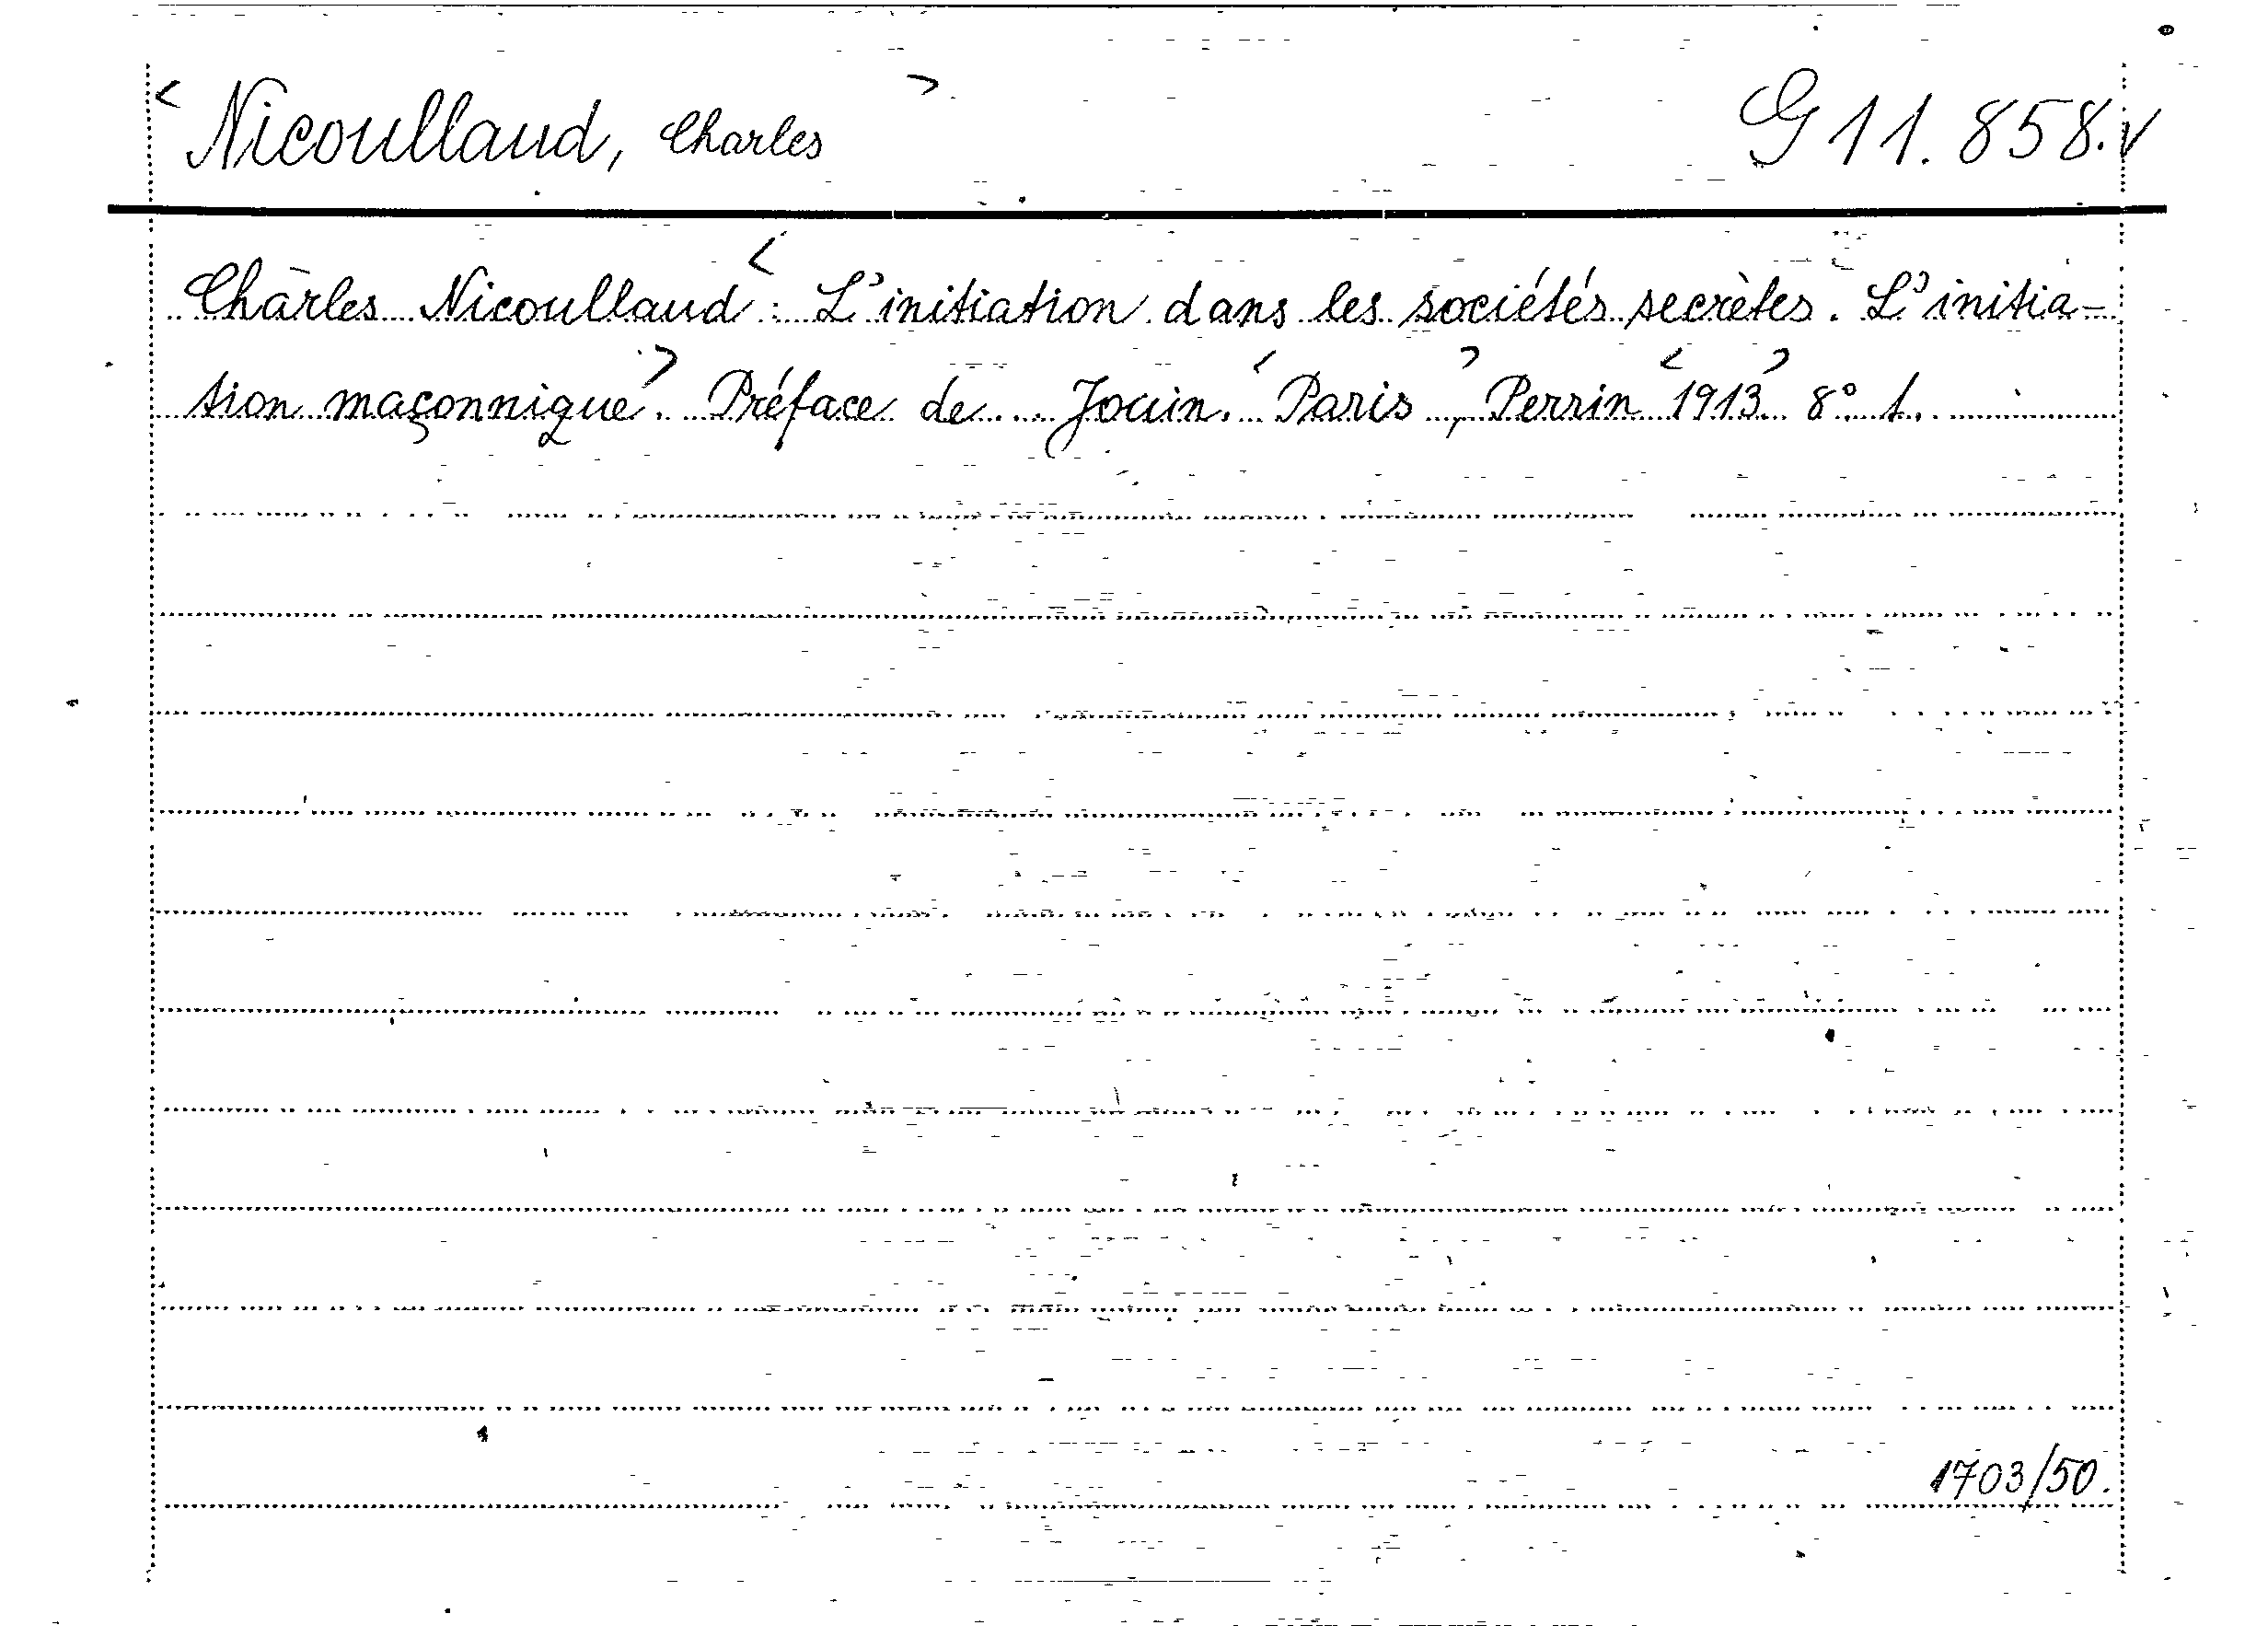 < Nicoullaud, Charles > G 11.858. v
Charles Nicoullaud < : L'initiation dans les sociétés secrètes. L'initia-
tion maçonnique > . Préface de ... Jouin. < Paris > , Perrin < 1913 > 8° 1.
1703/50.